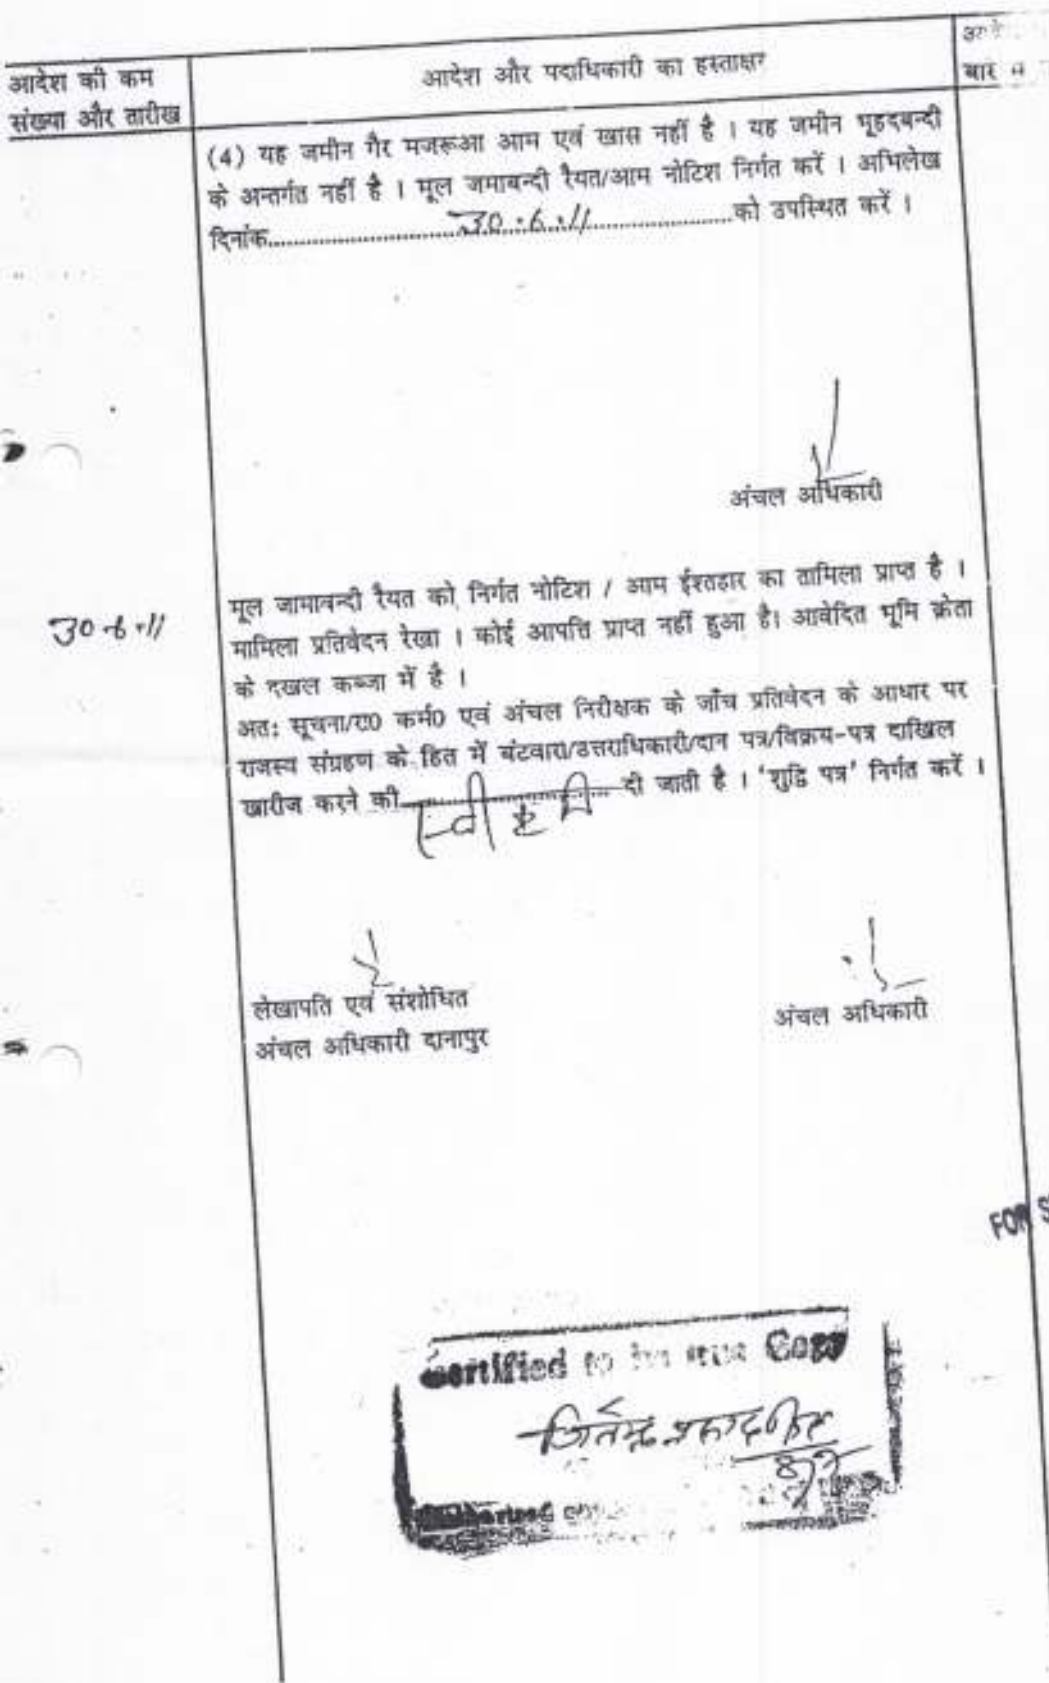 आदेश की कम
संख्या और तारीख
आदेश और पदाधिकारी का हस्ताक्षर
(4) यह जमीन गैर मजरूआ आम एवं खास नहीं है । यह जमीन भूहदबन्दी
के अन्तर्गत नहीं है । मूल जमाबन्दी रैयत/आम नोटिश निर्गत करें । अभिलेख
दिनांक..........30.6.11..........को उपस्थित करें ।
अंचल अधिकारी
30-6-11
मूल जामावन्दी रैयत को निर्गत नोटिश / आम ईश्तहार का तामिला प्राप्त है ।
मामिला प्रतिवेदन रेखा । कोई आपत्ति प्राप्त नहीं हुआ है। आवेदित भूमि क्रेता
के दखल कब्जा में है ।
अतः सूचना/रा0 कर्म0 एवं अंचल निरीक्षक के जाँच प्रतिवेदन के आधार पर
राजस्व संग्रहण के हित में बंटवारा/उत्तराधिकारी/दान पत्र/विक्रय-पत्र दाखिल
खारीज करने की..........स्वीकृति..........दी जाती है । 'शुद्धि पत्र' निर्गत करें ।
लेखापति एवं संशोधित
अंचल अधिकारी दानापुर
अंचल अधिकारी
FOR
Certified to be true Copy